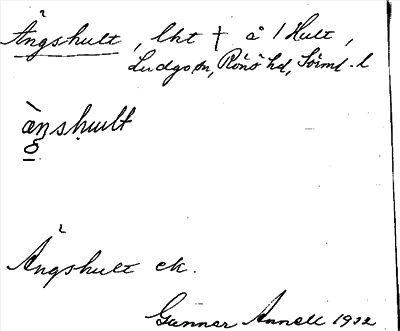 Ängshult, lht † å 1 Hult,
Ludgo sn, Rönö hd, Sörml. l
Ängshult ek.
Gunnar Annell 1932